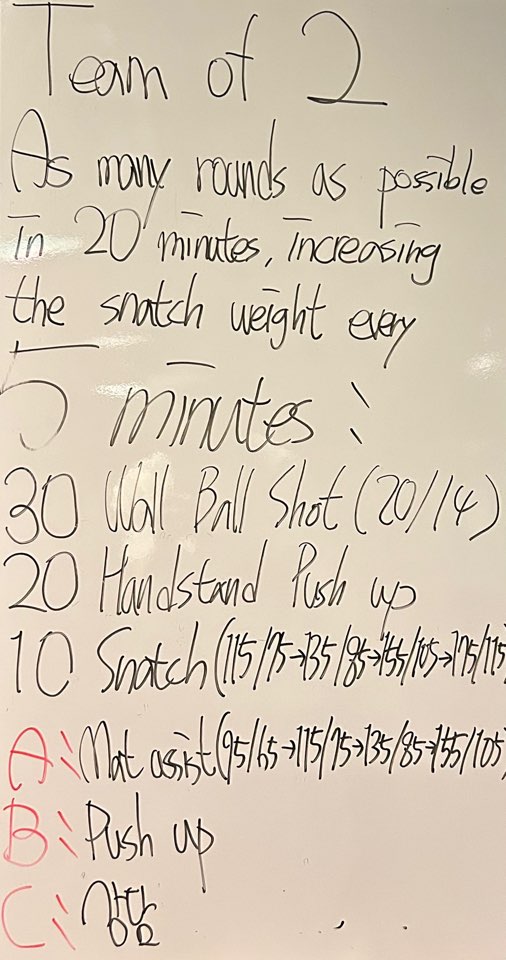 Team of 2
As many rounds as possible
in 20 minutes, increasing
the snatch weight every
5 minutes :
30 Wall Ball Shot (20/14)
20 Handstand Push up
10 Snatch (115/75→135/85→155/105→175/115)
A: Mat assist (95/65→115/75→135/85→155/105)
B: Push up
C: 상담